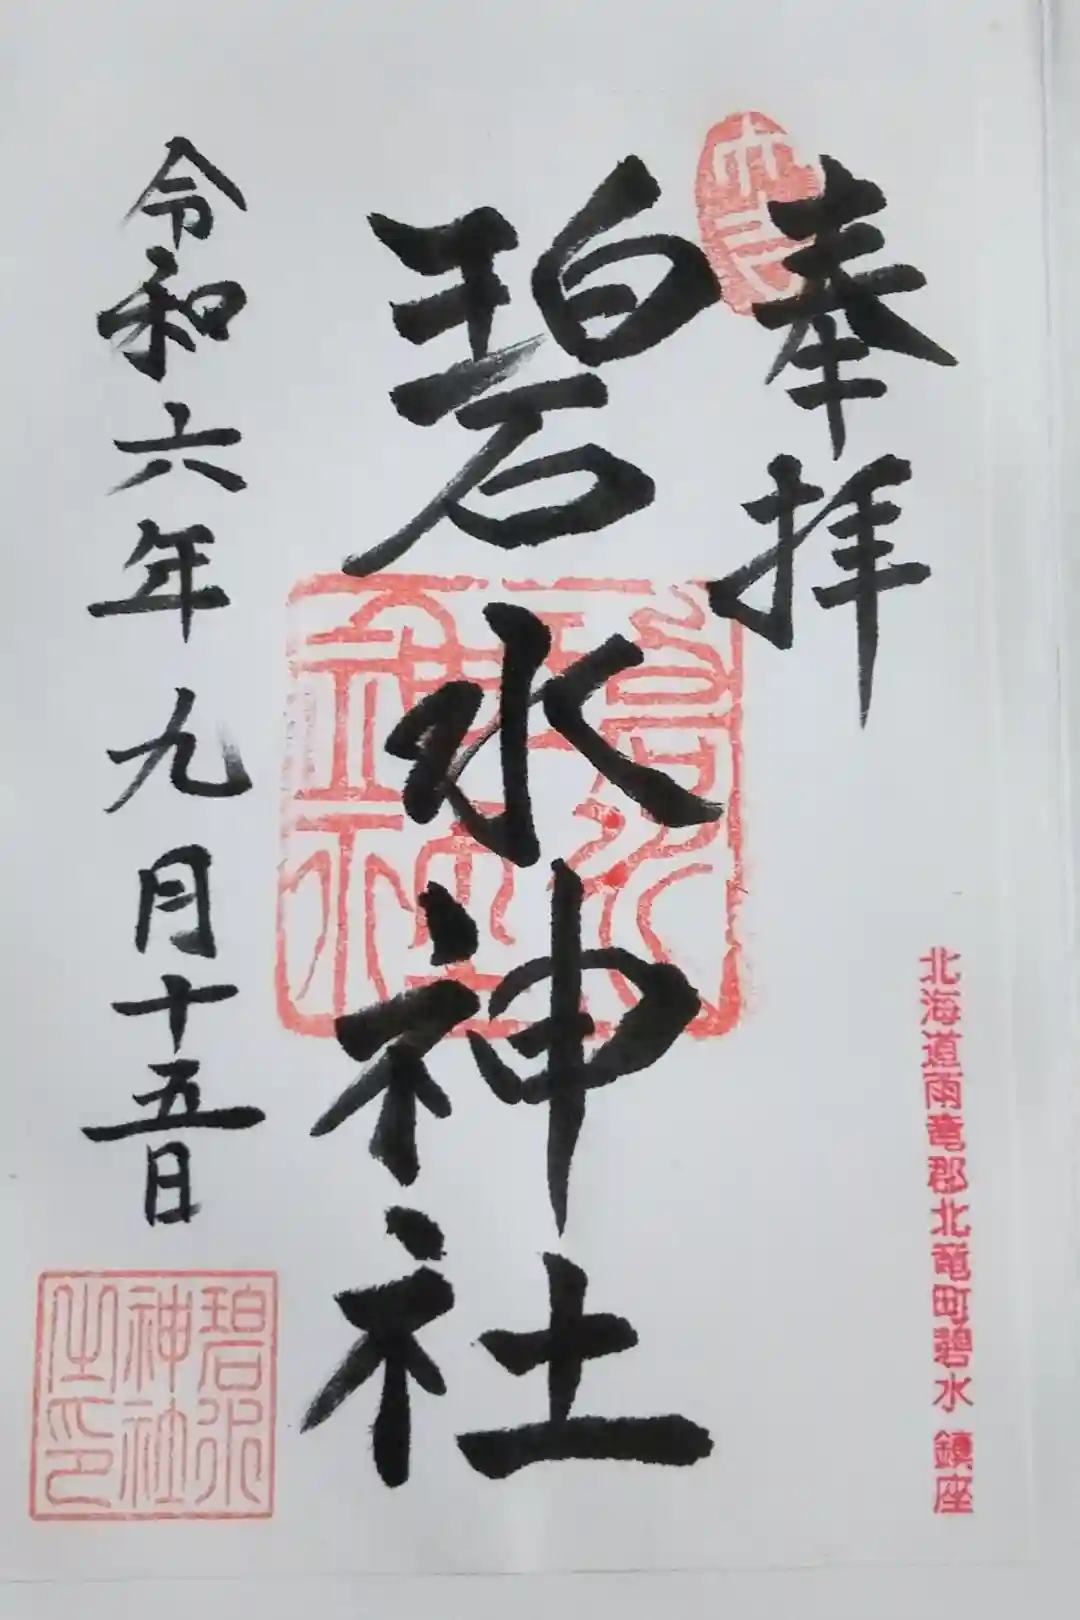 奉拝
北海道雨竜郡北竜町碧水 鎮座
碧水神社
令和六年九月十五日
碧水
神社
之印